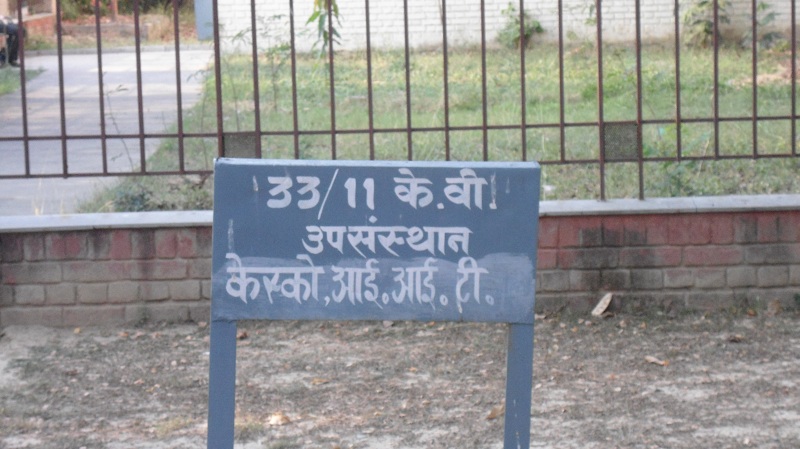 33/11 के.वी.
उपसंस्थान
केस्को,आई.आई.टी.